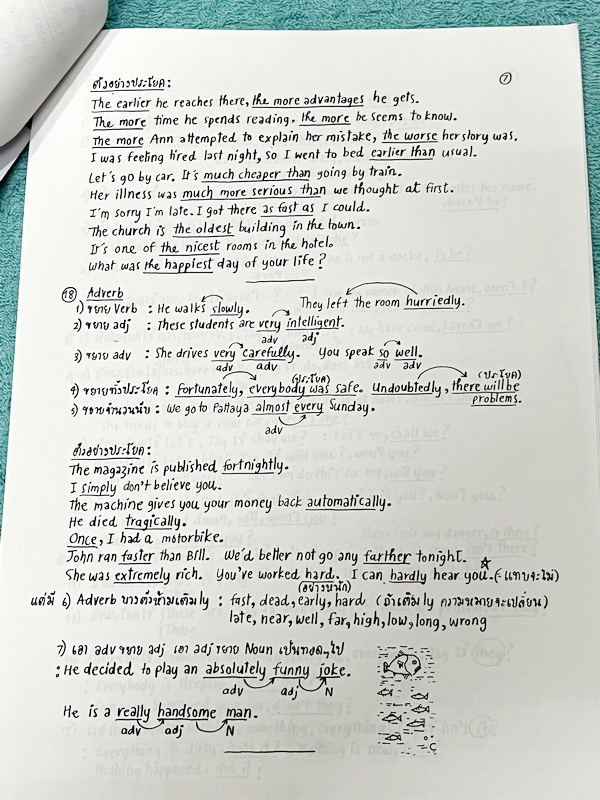 ตัวอย่างประโยค : 7
The earlier he reaches there, the more advantages he gets.
The more time he spends reading, the more he seems to know.
The more Ann attempted to explain her mistake, the worse her story was.
I was feeling tired last night, so I went to bed earlier than usual.
Let's go by car. It's much cheaper than going by train.
Her illness was much more serious than we thought at first.
I'm sorry I'm late. I got there as fast as I could.
The church is the oldest building in the town.
It's one of the nicest rooms in the hotel.
What was the happiest day of your life?
18 Adverb
1) ขยาย Verb : He walks slowly. They left the room hurriedly.
2) ขยาย adj : These students are very intelligent.
adv adj
3) ขยาย adv : She drives very carefully. You speak so well.
adv adv adv adv
(ประโยค) (ประโยค)
4) ขยายทั้งประโยค : Fortunately, everybody was safe. Undoubtedly, there will be
problems.
5) ขยายจำนวนนับ : We go to Pattaya almost every Sunday.
adv
ตัวอย่างประโยค :
The magazine is published fortnightly.
I simply don't believe you.
The machine gives you your money back automatically.
He died tragically.
Once, I had a motorbike.
John ran faster than Bill. We'd better not go any farther tonight.
She was extremely rich. You've worked hard. I can hardly hear you. (= แทบจะไม่)
(อย่างหนัก)
แต่มี 6) Adverb บางตัวห้ามเติม ly : fast, dead, early, hard (ถ้าเติม ly ความหมายจะเปลี่ยน)
late, near, well, far, high, low, long, wrong
7) เอา adv ขยาย adj เอา adj ขยาย Noun เป็นทอดๆไป
: He decided to play an absolutely funny joke.
adv adj N
He is a really handsome man.
adv adj N